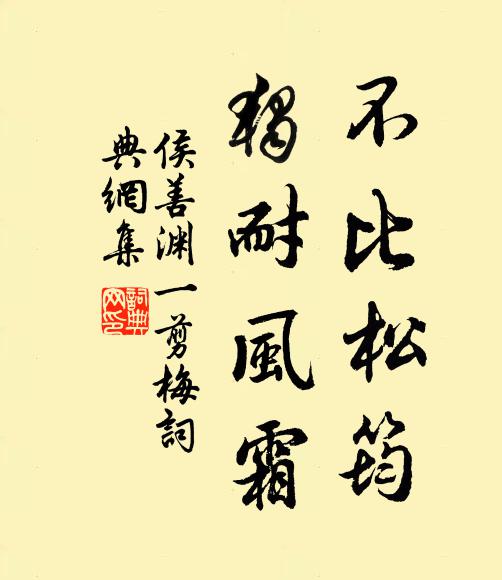 不比松筠
獨耐風霜
侯善渊一剪梅詞
典網集
詞典
网印